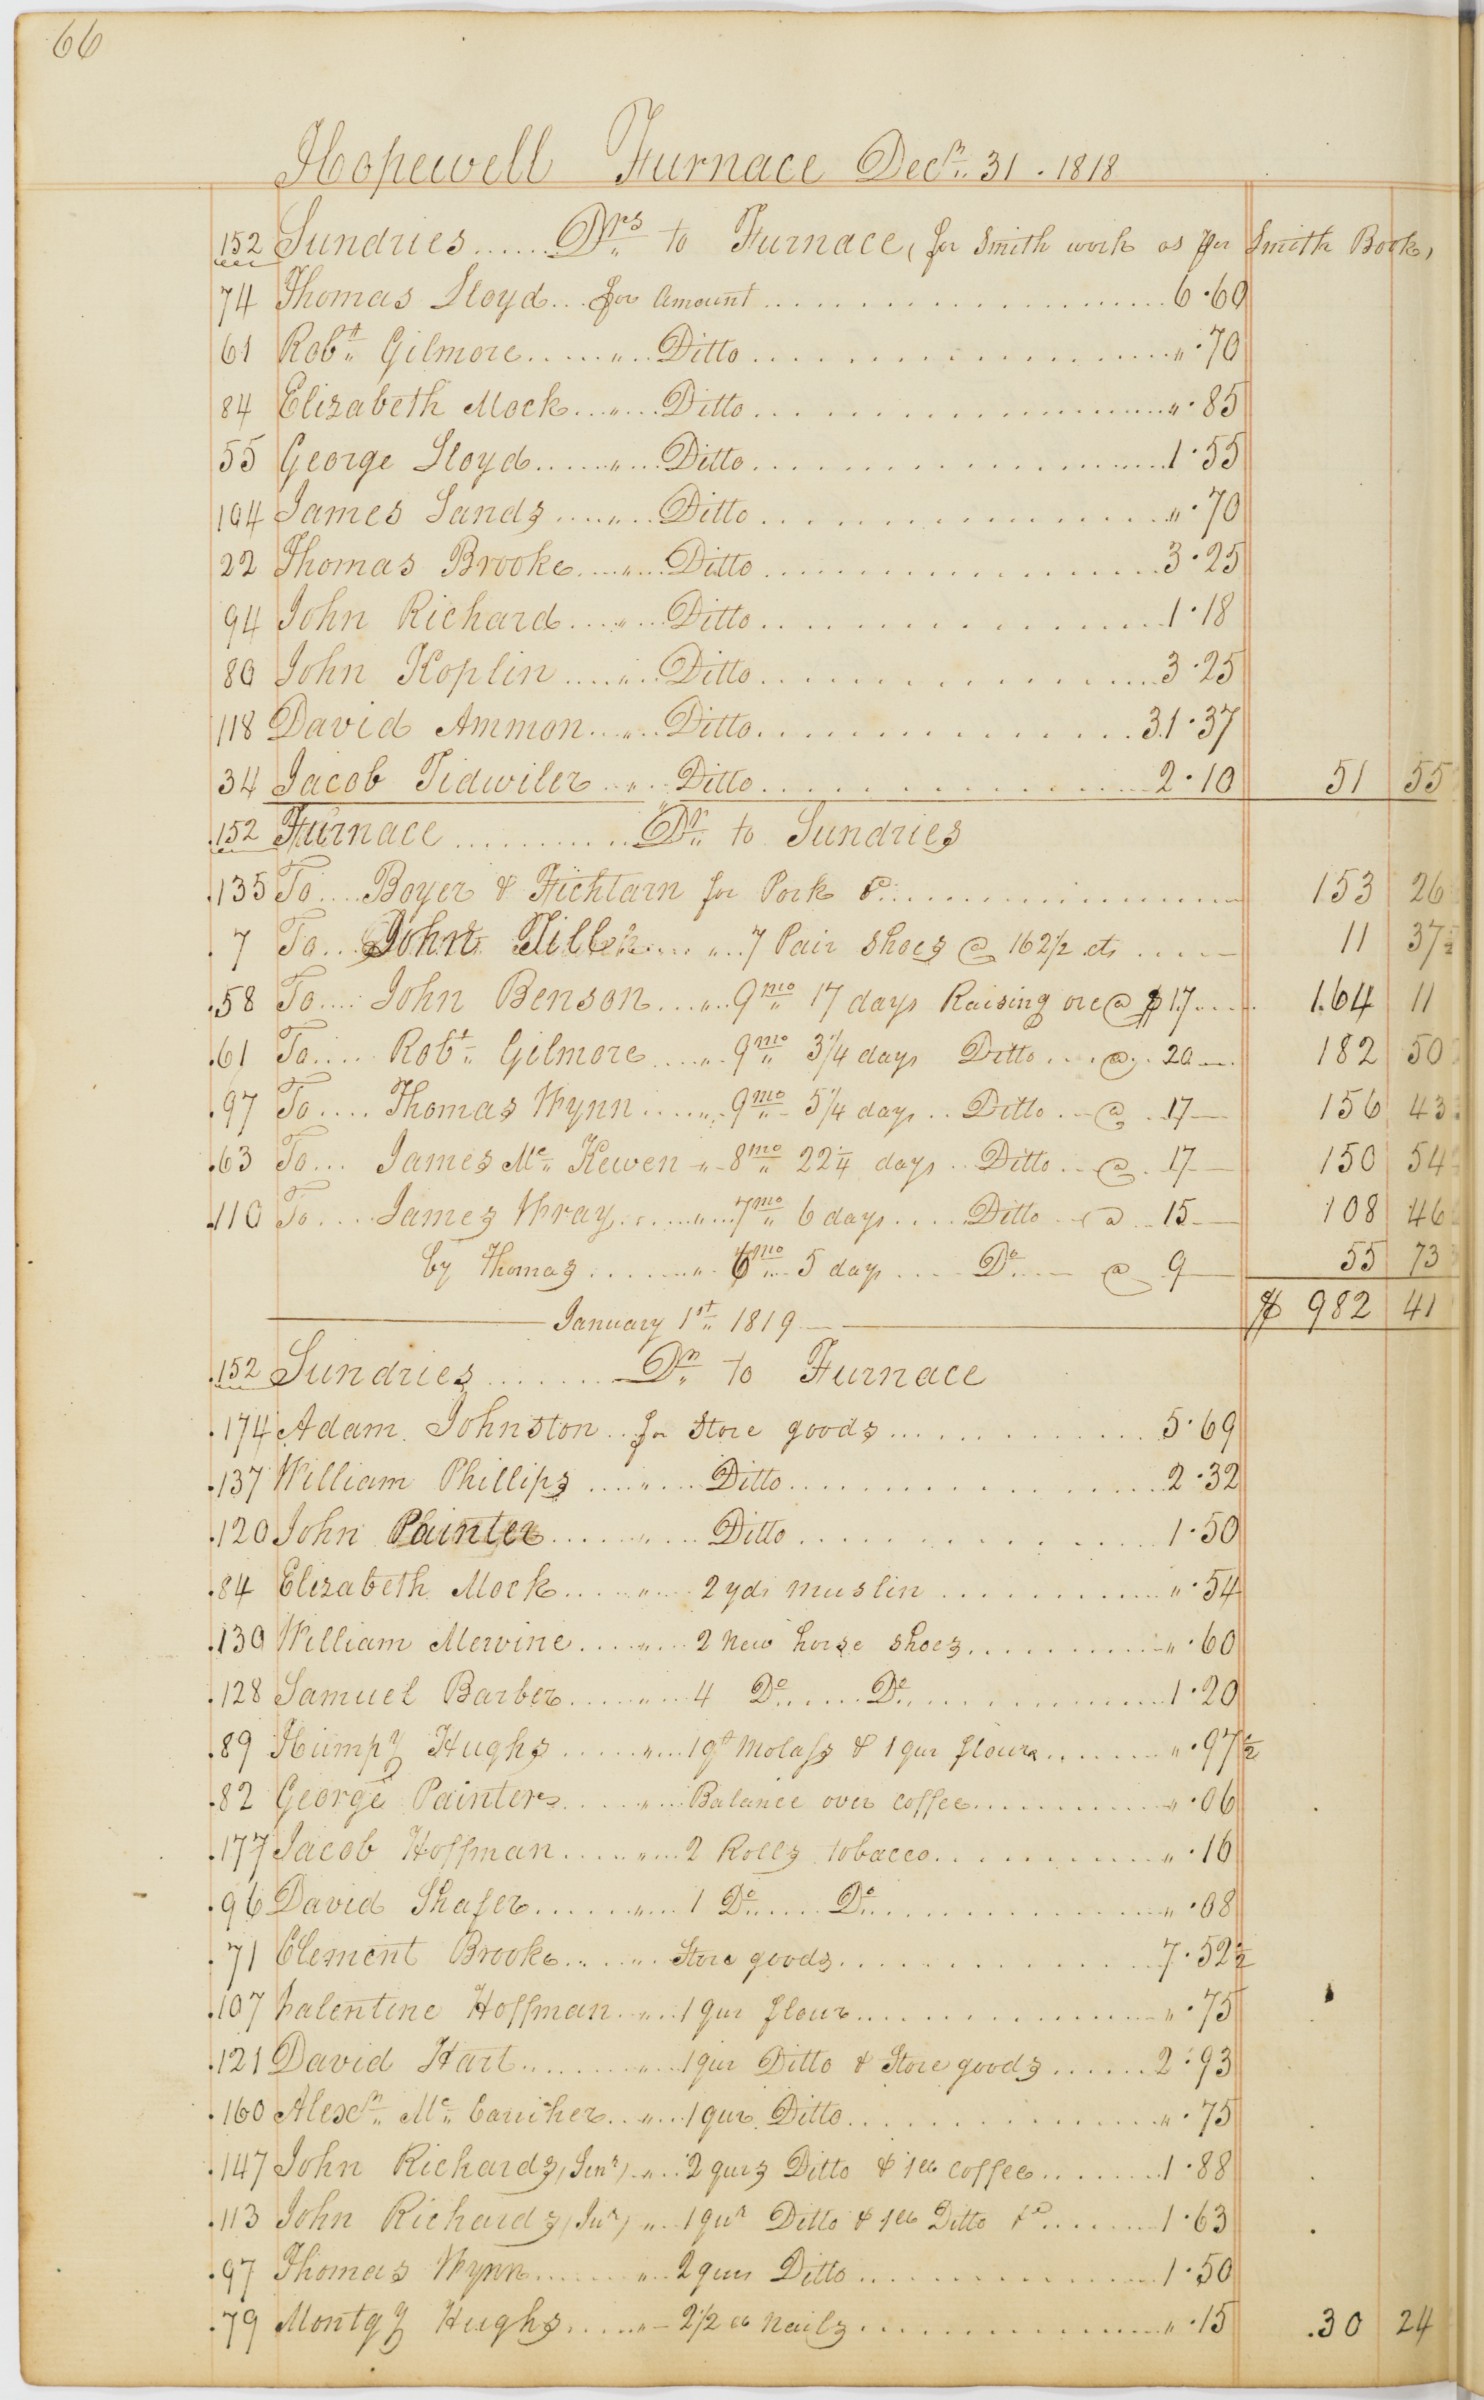 66
Hopewell Furnace Decr. 31. 1818
152 Sundries ...... Drs to Furnace, for Smith work as per Smith Book,
74 Thomas Lloyd ... for amount ...... 6.60
61 Robt. Gilmore ...... " .. Ditto ...... ".70
84 Elizabeth Mock ... " ... Ditto ...... ".85
55 George Lloyd ...... " ... Ditto ...... 1.55
104 James Sands ..... " ... Ditto ...... ".70
22 Thomas Brooke .... " ... Ditto ...... 3.25
94 John Richard .... " ... Ditto ...... 1.18
80 John Koplin ..... " .. Ditto ...... 3.25
118 David Ammon ... " .. Ditto ...... 31.37
34 Jacob Tidwiler .. " .. Ditto ...... 2.10 51 55
152 Furnace ............ Dr. to Sundries
.135 To .... Boyer & Fichtarn for Pork &c ...... 153 26
. 7 To ... John Tiller .... " .. 7 Pair Shoes @ 162½ cts ..... 11 37½
.58 To .... John Benson .... " .. 9mo 17 days Raising ore @ $17 .... 164 11
.61 To ..... Robt. Gilmore .... " . 9mo 3¼ days Ditto ... @ . 20 182 50
.97 To .... Thomas Wynn ..... " . 9mo 5¼ days .. Ditto .. @ . 17 156 43
.63 To ... James Mc. Kewen " 8mo 22¼ days .. Ditto .. @ . 17 150 54
.110 To .... James Wray ...... " ... 7mo 6 days .... Ditto . @ .. 15 108 46
by Thomas ....... " . 6mo 5 days .... Do. @ 9 55 73
$ 982 41
January 1st. 1819
.152 Sundries ........ Dr. to Furnace
.174 Adam Johnston .. for Store goods ...... 5.69
.137 William Phillips .... " .... Ditto ...... 2.32
.120 John Painter ...... " ... Ditto ...... 1.50
.84 Elizabeth Mock ..... " .... 2 yds muslin ...... ".54
.130 William Mervine .... " ... 2 new horse shoes ...... ".60
.128 Samuel Barber ..... " ... 4 Do ...... Do ...... 1.20
.89 Humpy Hughs ..... " ... 1 qt Molass & 1 qur flour ...... ".97½
.82 George Painter ..... " ... Balance over coffee ...... ".06
.177 Jacob Hoffman ..... " ... 2 Rolls tobacco ...... ".16
.96 David Shafer ...... " ... 1 Do ..... Do ...... ".08
.71 Clement Brooke ... " .. Store goods ...... 7.52½
.107 Valentine Hoffman .. " .. 1 qur flour ...... ".75
.121 David Hart ........ " .. 1 qur Ditto & Store goods ...... 2.93
.160 Alexr. Mc. Caricher .. " .. 1 qur Ditto ...... ".75
.147 John Richards, (Senr) .. " .. 2 qurs Ditto & 1 lb coffee ...... 1.88
.113 John Richards, (Junr) " .. 1 qur Ditto & 1 lb Ditto &c ...... 1.63
.97 Thomas Wynn ....... " .. 2 qurs Ditto ...... 1.50
.79 Montgy Hughs ..... " . 2½ lb nails ...... ".15 .30 24